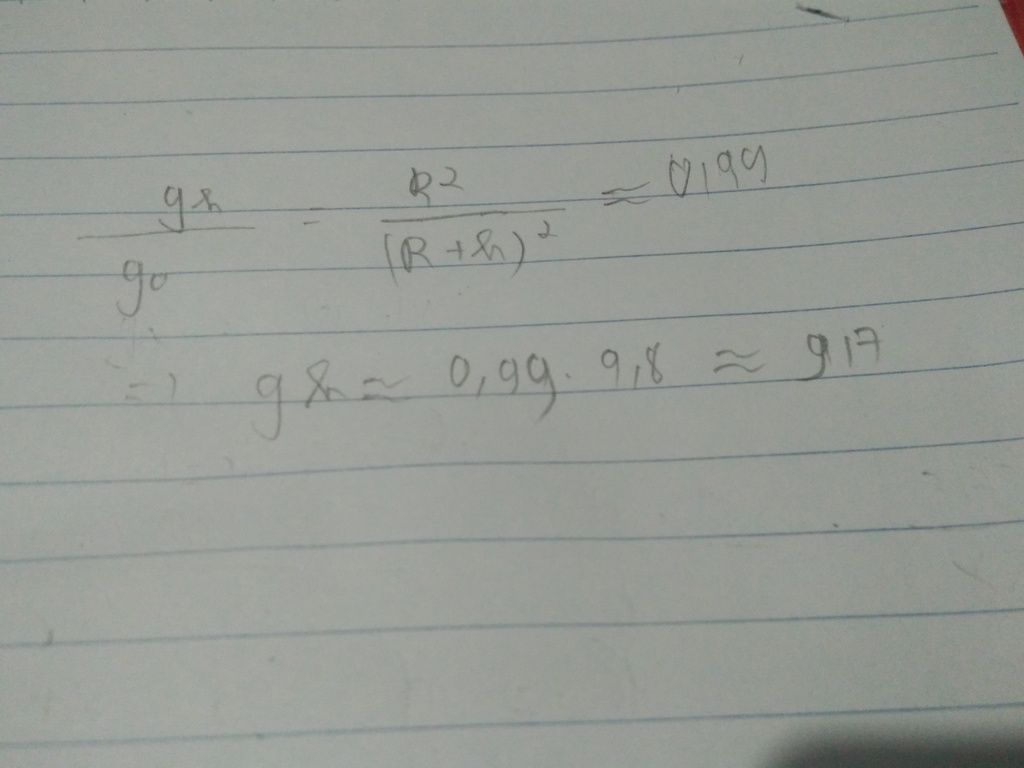 gh/g0 = R²/(R+h)² ≈ 0,99
=> gh ≈ 0,99. 9,8 ≈ 9,7